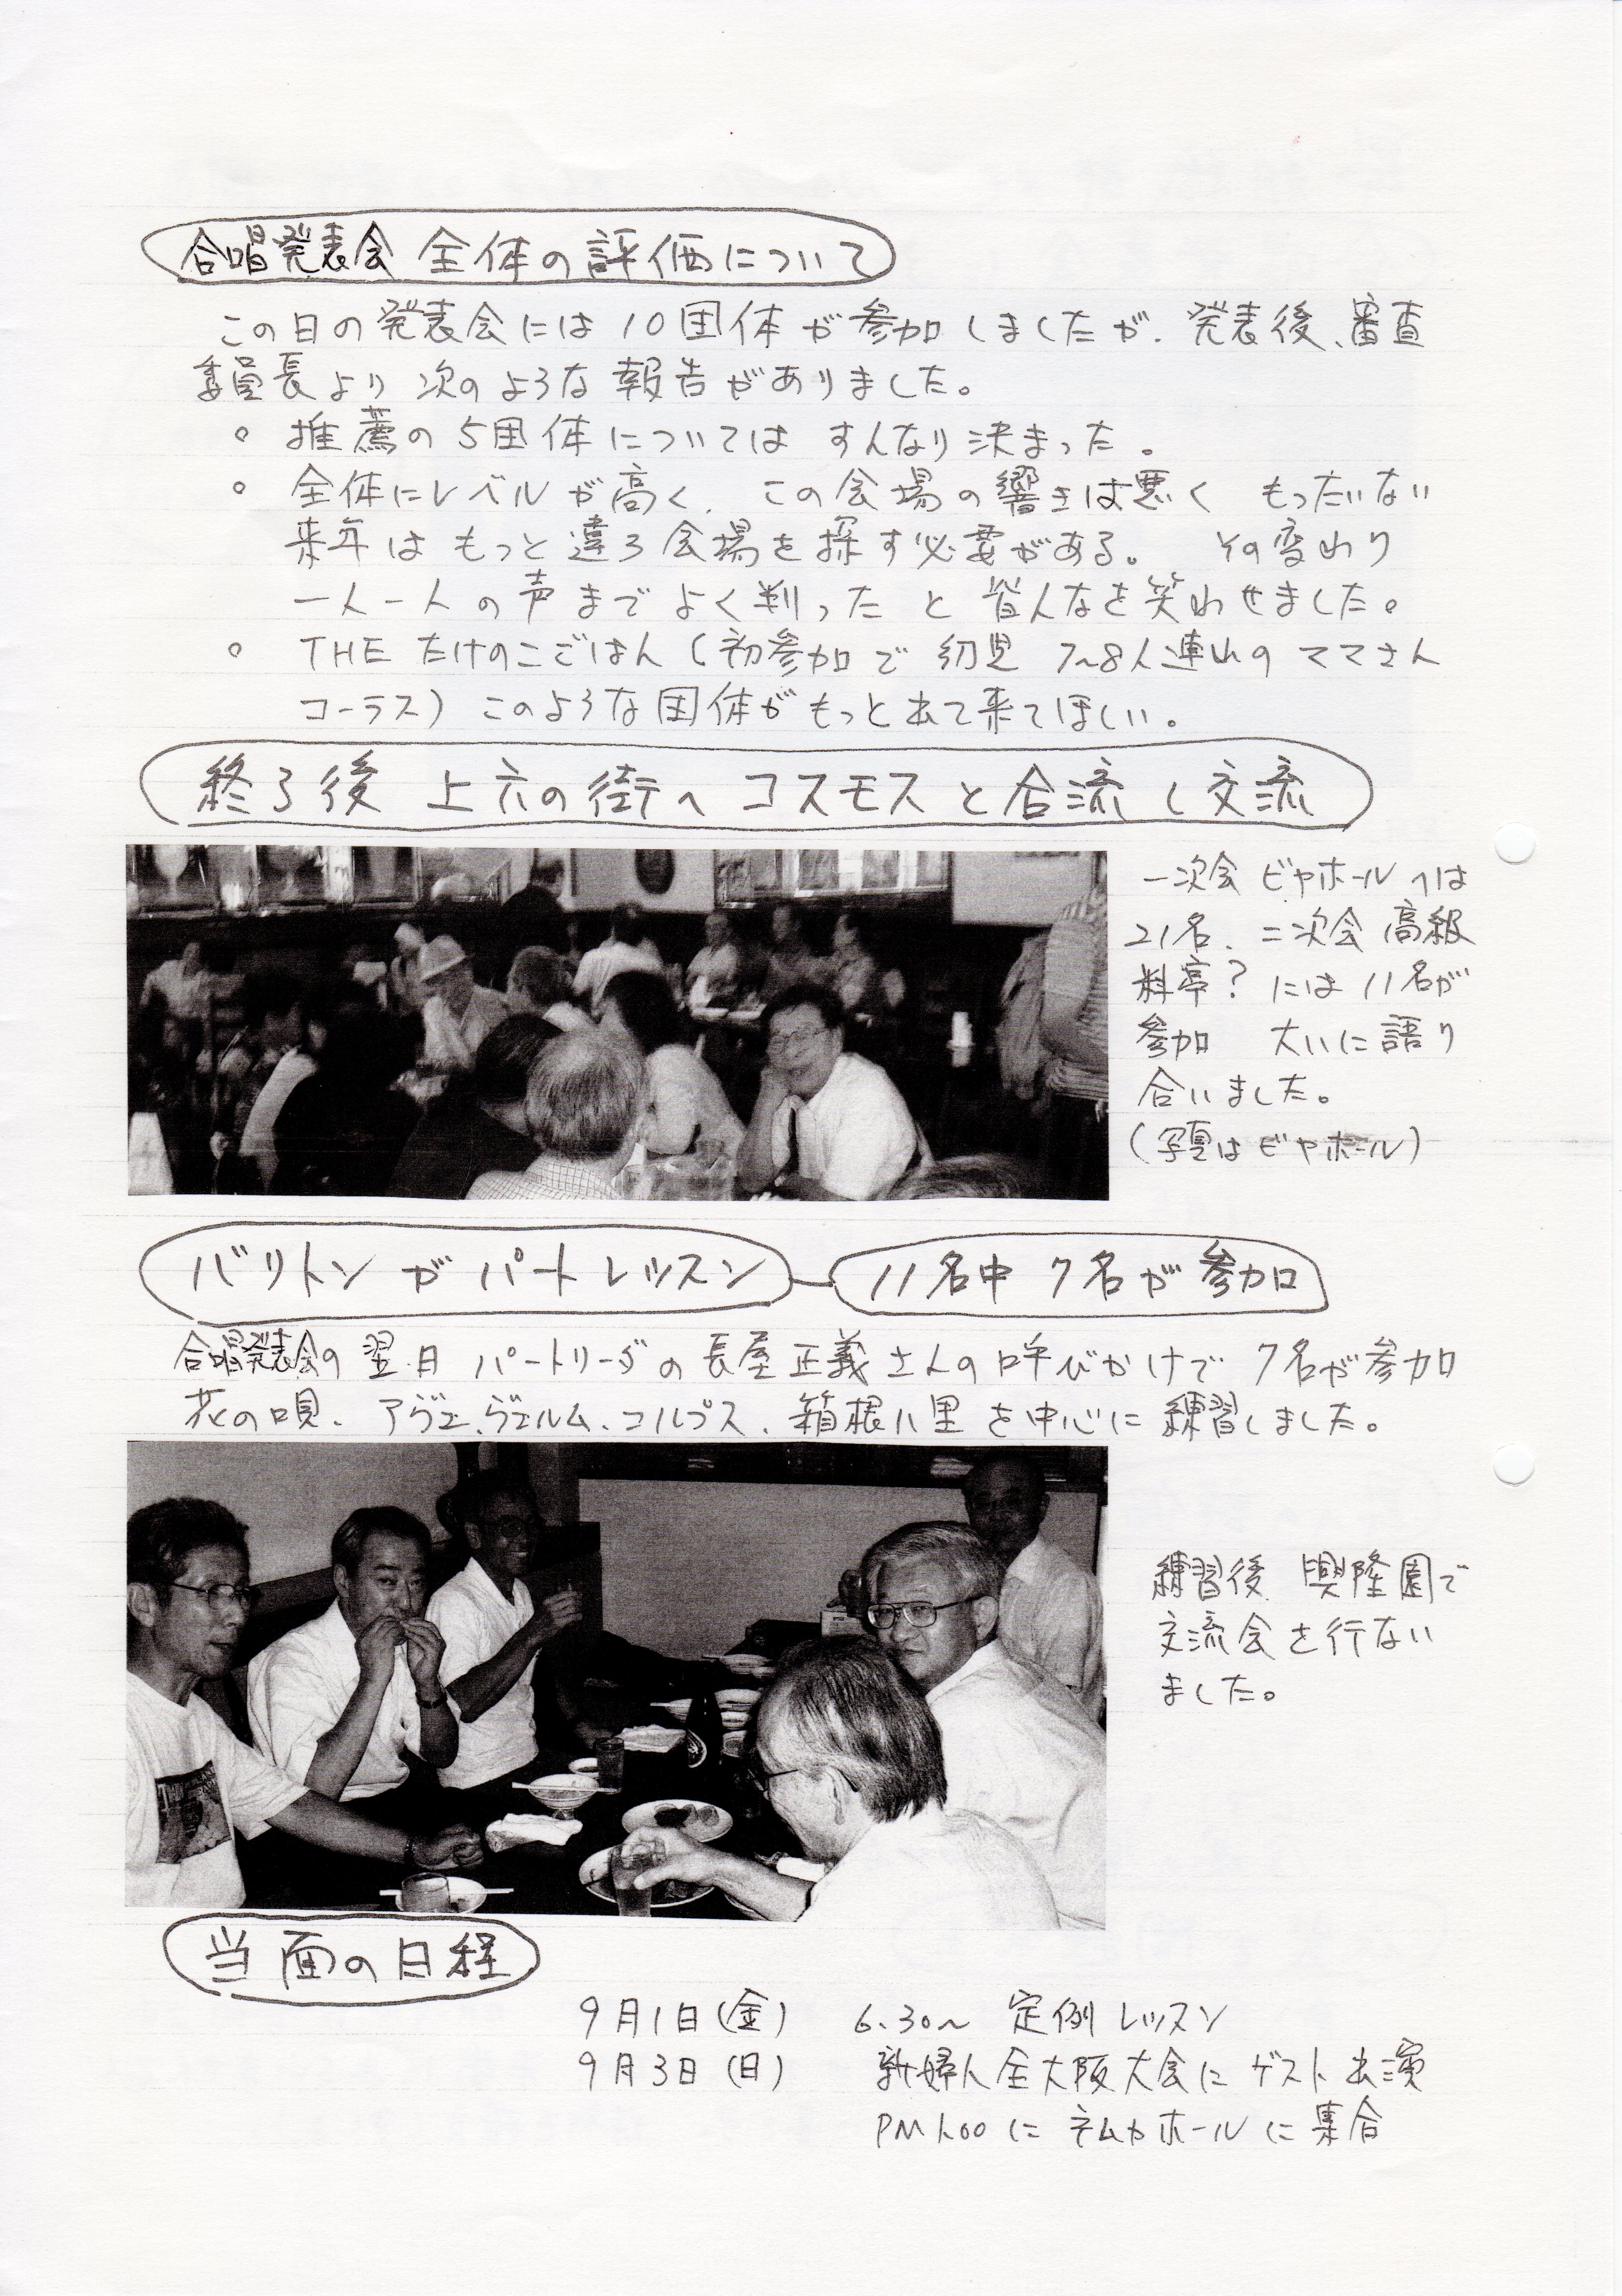 合唱発表会 全体の評価について
この日の発表会には10団体が参加しましたが、発表後、審査
委員長より次のような報告がありました。
○ 推薦の5団体については すんなり決まった。
○ 全体にレベルが高く、この会場の響きは悪く もったいない
来年は もっと違う会場を探す必要がある。 その変わり
一人一人の声まで よく判った と 皆んなを笑わせました。
○ THE たけのこごはん (初参加で 幼児 7~8人連れの ママさん
コーラス) このような団体がもっと出て来てほしい。
終了後 上六の街へ コスモスと合流し交流
一次会 ビヤホールへは
21名、二次会 高級
料亭? には 11名が
参加 大いに語り
合いました。
(写真は ビヤホール)
バリトン が パートレッスン 11名中 7名が 参加
合唱発表会の翌日 パートリーダの長屋正義さんの呼びかけで 7名が参加
花の唄、アヴェ、ヴェルム、コルプス、箱根八里 を中心に 練習しました。
練習後 興隆園で
交流会を行ない
ました。
当面の日程
9月1日(金) 6.30~ 定例レッスン
9月3日(日) 新婦人全大阪大会に ゲスト出演
PM1.00に ネムカホールに集合